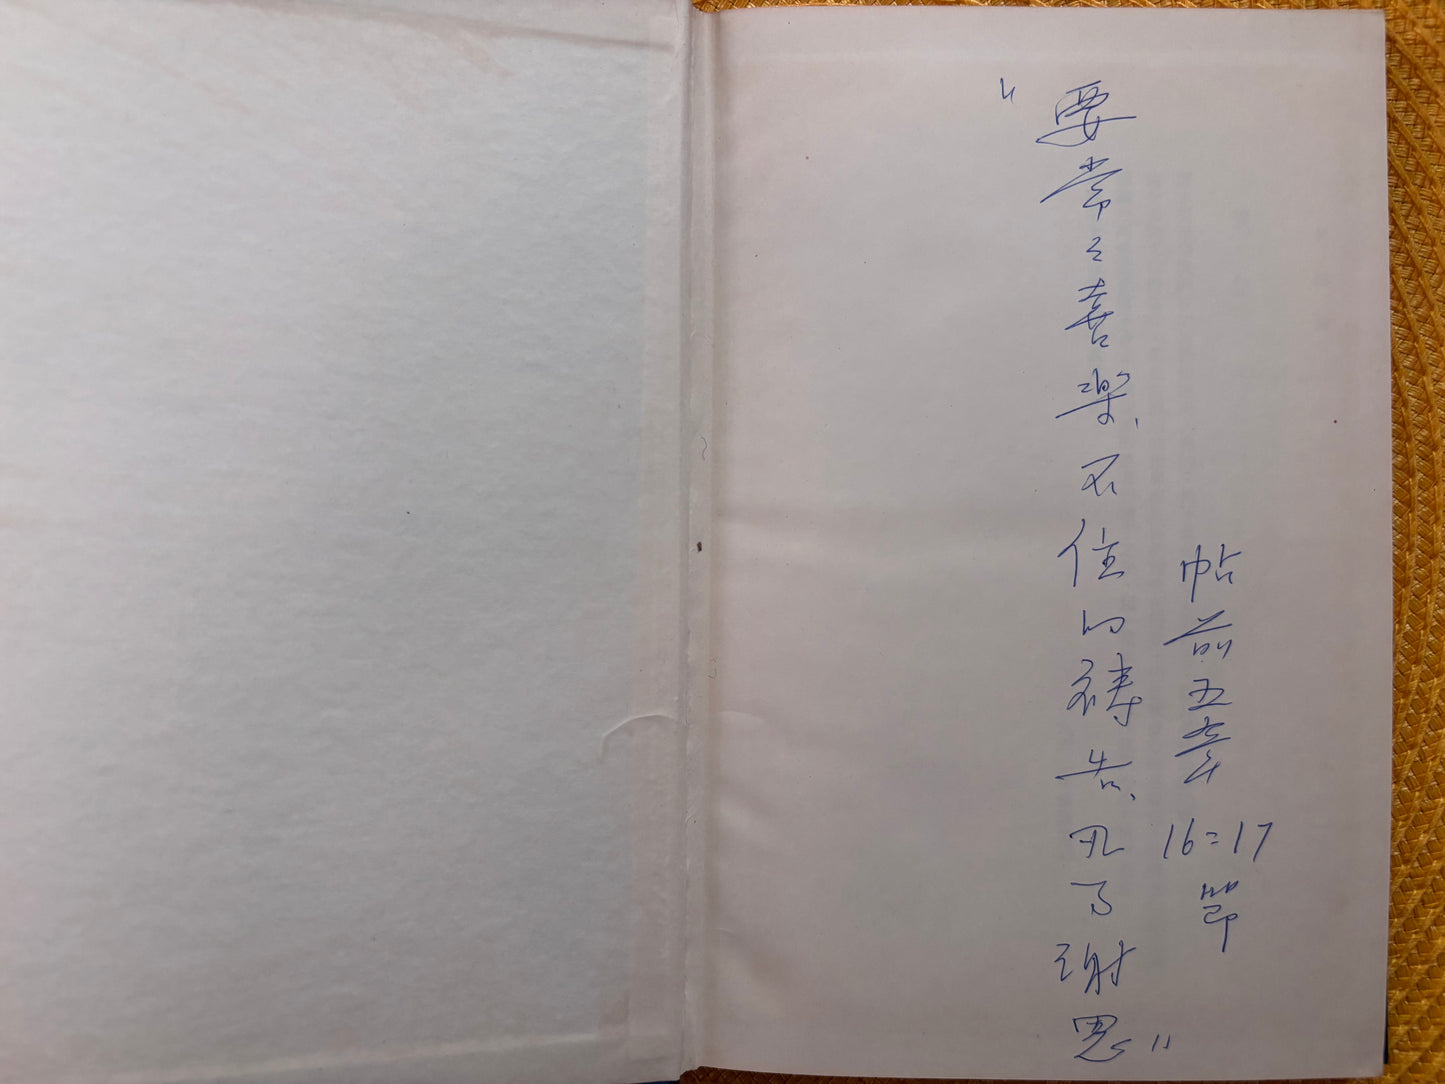 "要常々喜楽、不住的祷告、凡事谢恩"
帖前五章16=17節